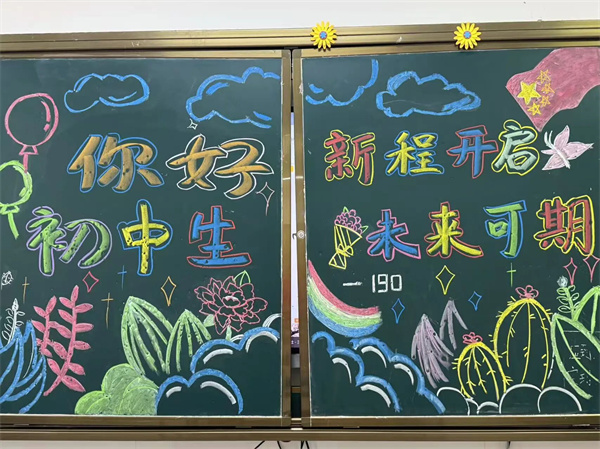 你好
初中生
新程开启
未来可期
—190